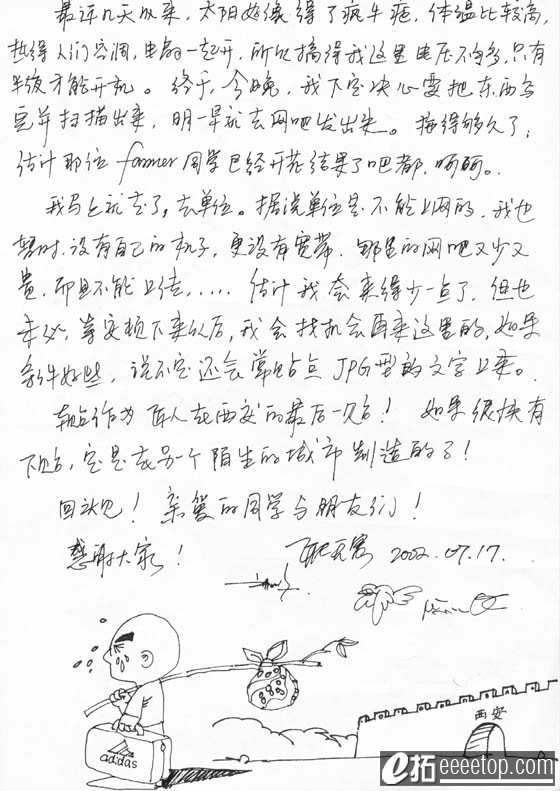 最近几天以来，太阳好像得了疯牛症，体温比较高，
热得人们空调、电扇一起开，所以搞得我这里电压不够，只有
半夜才能开机。终于，今晚，我下定决心要把东西写
完并扫描出来，明一早就去网吧发出来。拖得够久了，
估计那位farmer同学已经开花结果了吧都，呵呵。
我马上就走了，去单位。据说单位是不能上网的，我也
暂时没有自己的机子，更没有宽带，那里的网吧又少又
贵，而且不能上传，……估计我会来得少一点了，但也
未必，等安顿下来以后，我会找机会再来这里的，如果
条件好些，说不定还会常贴点JPG型的文字上来。
贴作为匠人在西安的最后一贴！如果很快有
下贴，定是在另一个陌生的城市制造的了！
回头见！亲爱的同学与朋友们！
感谢大家！
2002.07.17.
西安
adidas
e拓eeeetop.com